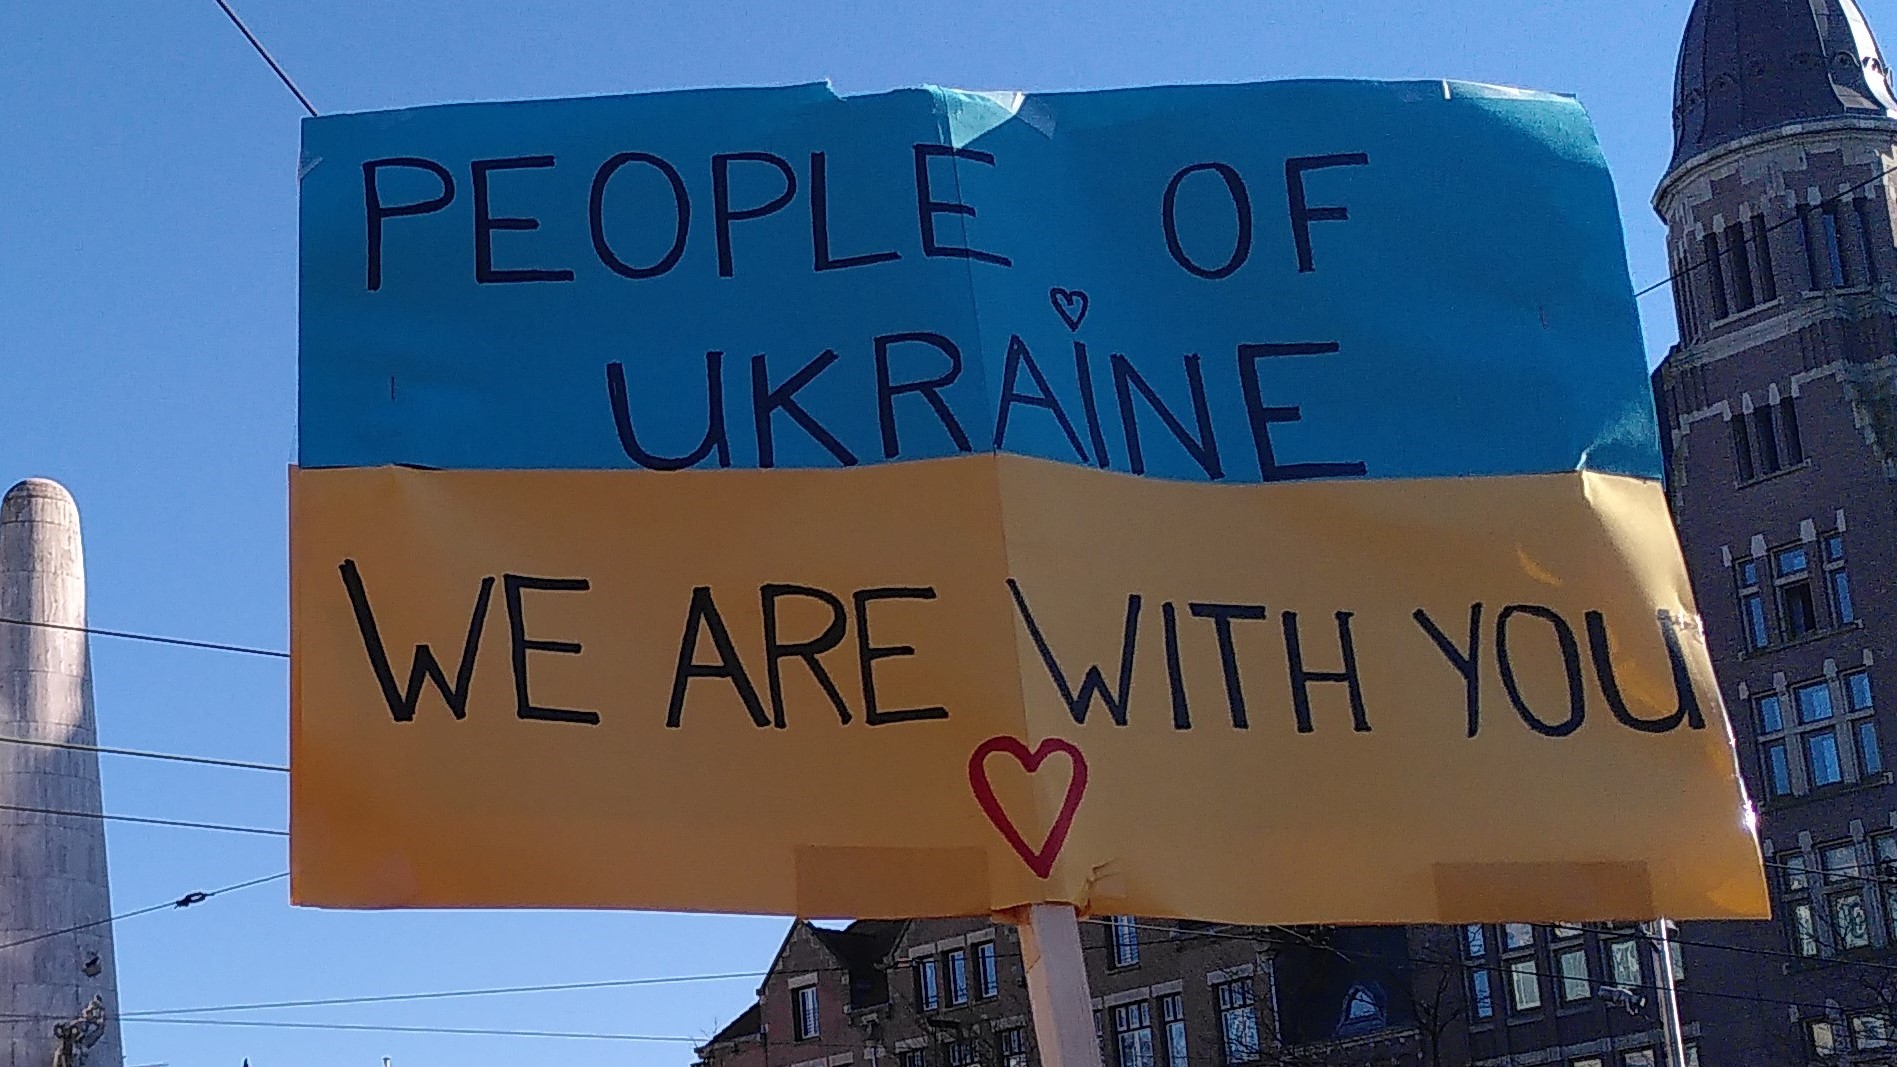 PEOPLE OF
UKRAiNE
WE ARE WITH YOU